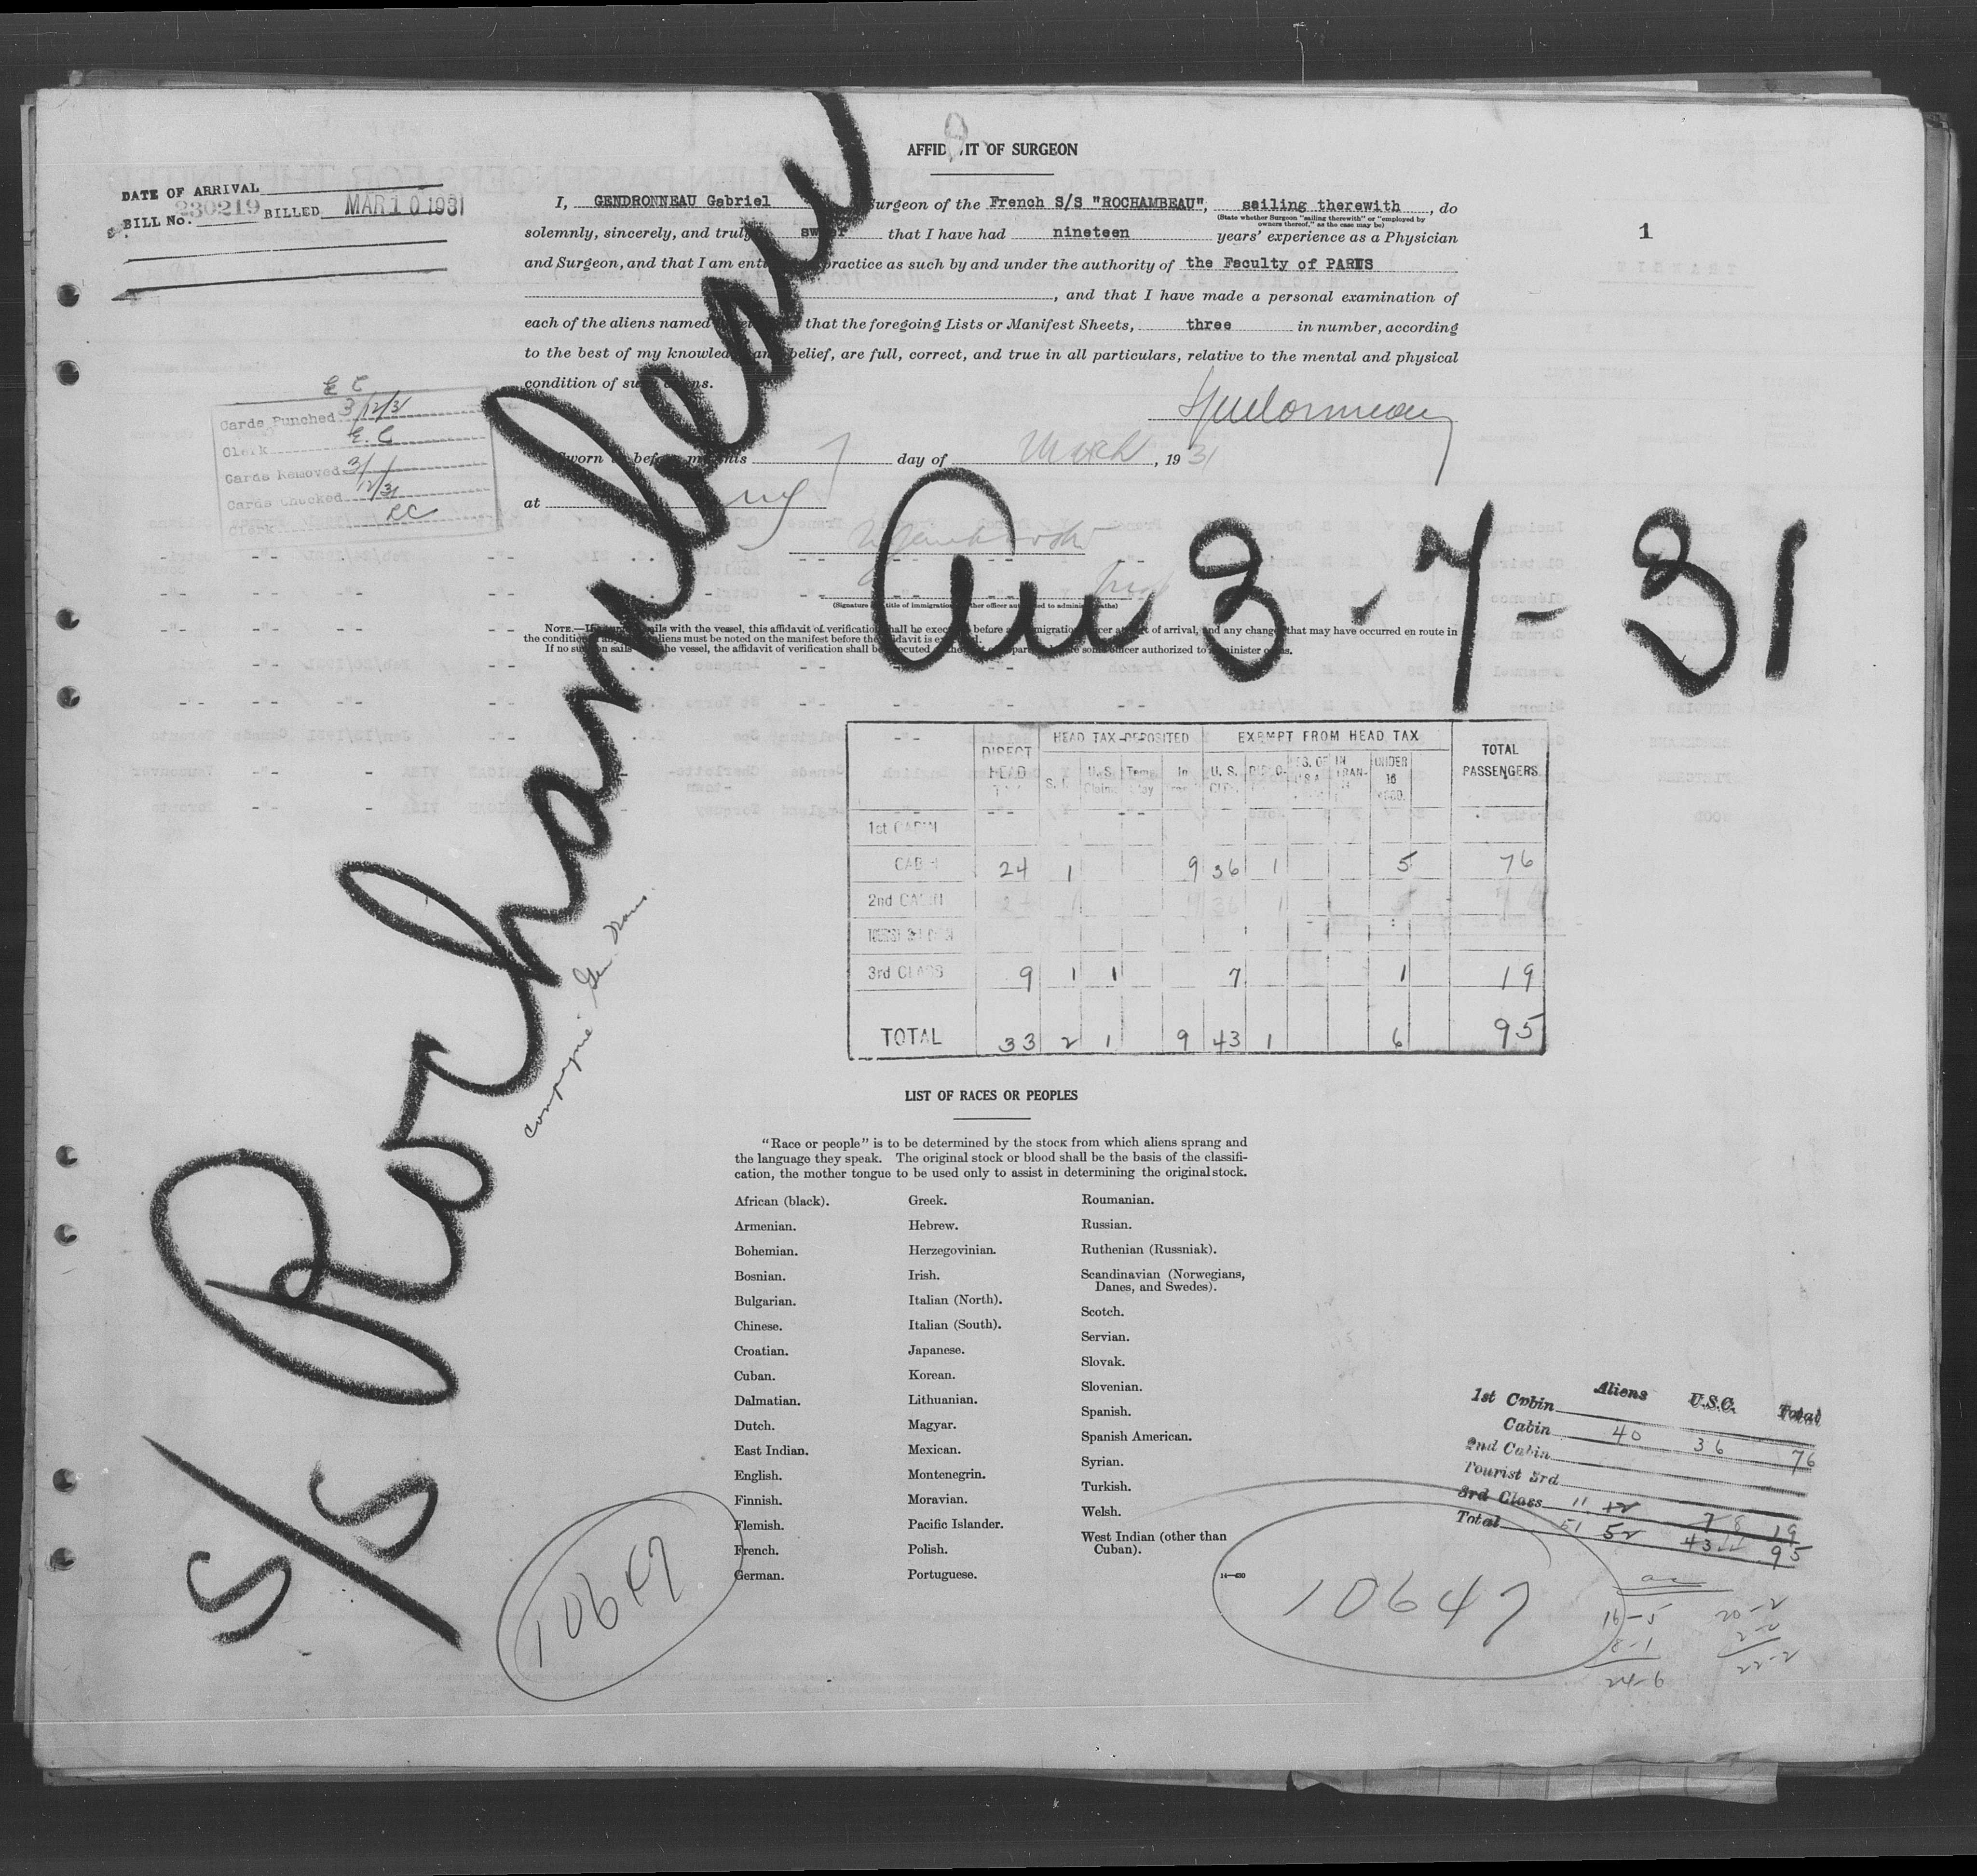 AFFIDAVIT OF SURGEON
DATE OF ARRIVAL
BILL No. 230219 BILLED MAR 10 1931
1
I, GENDRONNEAU Gabriel Surgeon of the French S/S "ROCHAMBEAU", sailing therewith, do
(State whether Surgeon "sailing therewith" or "employed by owners thereof," as the case may be)
solemnly, sincerely, and truly swear that I have had nineteen years' experience as a Physician
and Surgeon, and that I am entitled practice as such by and under the authority of the Faculty of PARIS
, and that I have made a personal examination of
each of the aliens named that the foregoing Lists or Manifest Sheets, three in number, according
to the best of my knowledge and belief, are full, correct, and true in all particulars, relative to the mental and physical
condition of such aliens.
E C
Cards Punched 3/12/31
Clerk E. C
Cards Removed 3/
Cards Checked 12/31
Clerk EC
Sworn to before me this 7 day of March, 1931
at NY
(Signature title of immigration other officer authorized to administer oaths)
S/S Rochambeau
Arr 3-7-31
Compagnie Gen. Trans.
NOTE.—If surgeon sails with the vessel, this affidavit of verification shall be executed before an immigration officer at port of arrival, and any change that may have occurred en route in
the condition aliens must be noted on the manifest before the affidavit is executed.
If no surgeon sails the vessel, the affidavit of verification shall be executed before some officer authorized to administer oaths.
DIRECT HEAD TAX | HEAD TAX DEPOSITED | EXEMPT FROM HEAD TAX | TOTAL PASSENGERS
S.I. U.S. Claims Temp. Stay In Trans. U.S. CITZ. DIPLO. RES. OF U.S.A. IN TRAN- UNDER 16
1st CABIN
CABIN 24 1 9 36 1 5 76
2nd CABIN
TOURIST 3rd CABIN
3rd CLASS 9 1 1 7 1 19
TOTAL 33 2 1 9 43 1 6 95
LIST OF RACES OR PEOPLES
"Race or people" is to be determined by the stock from which aliens sprang and
the language they speak. The original stock or blood shall be the basis of the classifi-
cation, the mother tongue to be used only to assist in determining the original stock.
African (black).
Armenian.
Bohemian.
Bosnian.
Bulgarian.
Chinese.
Croatian.
Cuban.
Dalmatian.
Dutch.
East Indian.
English.
Finnish.
Flemish.
French.
German.
Greek.
Hebrew.
Herzegovinian.
Irish.
Italian (North).
Italian (South).
Japanese.
Korean.
Lithuanian.
Magyar.
Mexican.
Montenegrin.
Moravian.
Pacific Islander.
Polish.
Portuguese.
Roumanian.
Russian.
Ruthenian (Russniak).
Scandinavian (Norwegians,
Danes, and Swedes).
Scotch.
Servian.
Slovak.
Slovenian.
Spanish.
Spanish American.
Syrian.
Turkish.
Welsh.
West Indian (other than
Cuban).
14—430
Aliens U.S.C. Total
1st Cabin
Cabin 40 36 76
2nd Cabin
Tourist 3rd
3rd Class 11 12 7 8 19
Total 51 52 43 44 95
10647
10647
16-5 20-2
8-1 2-0
24-6 22-2